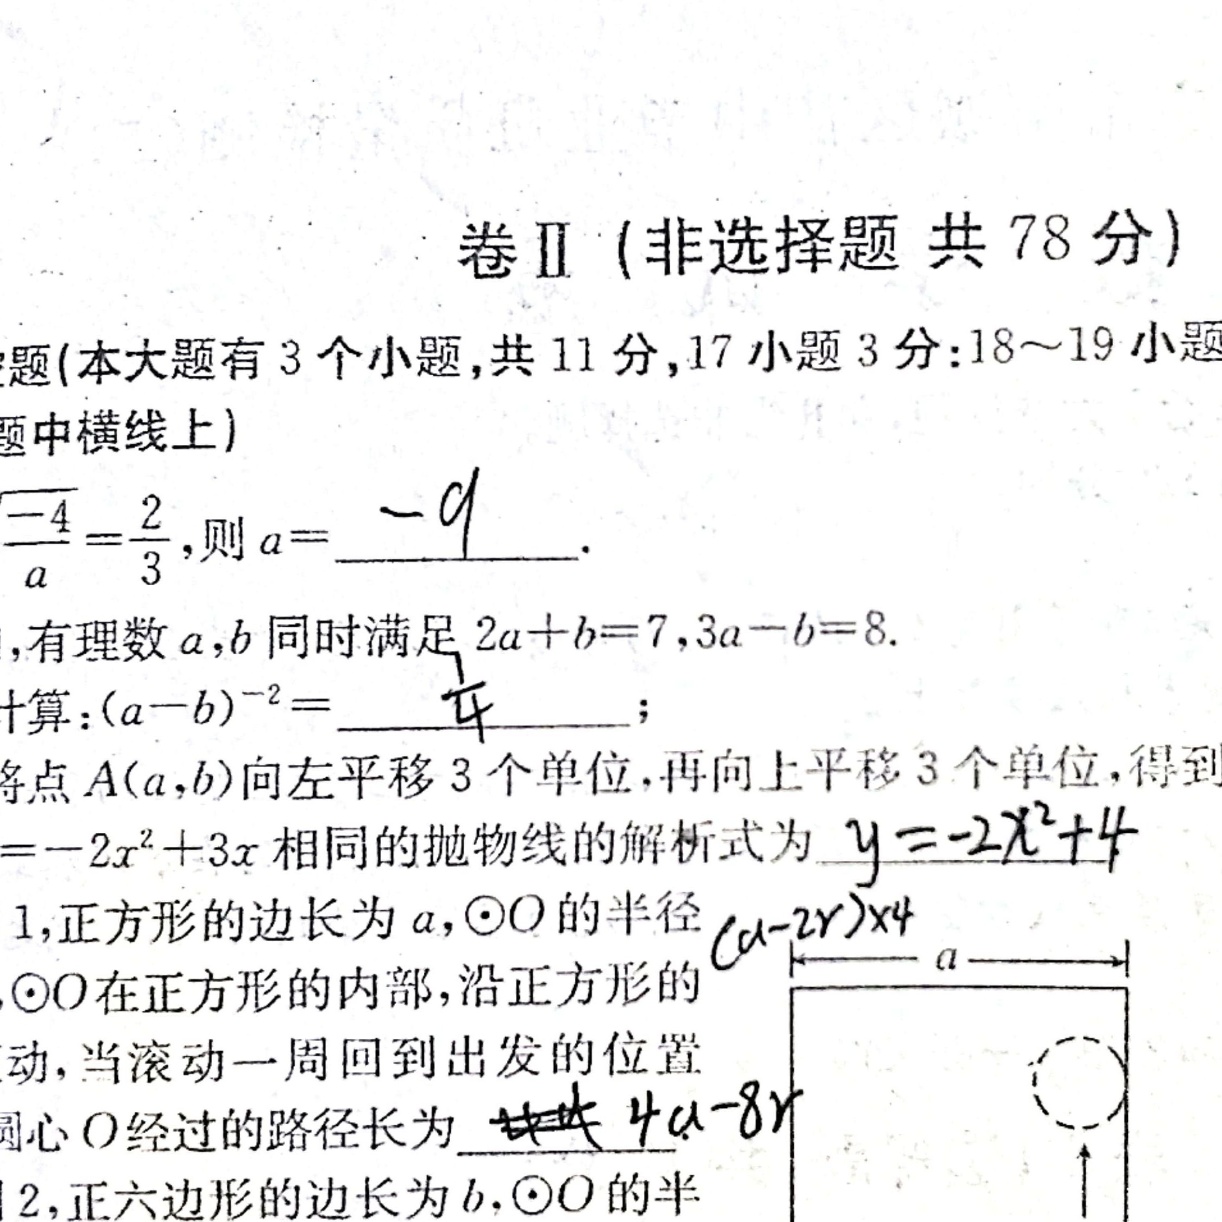 卷Ⅱ (非选择题 共 78 分)
题(本大题有 3 个小题,共 11 分,17 小题 3 分:18~19 小题
题中横线上)
√(-4/a)=2/3,则 a= -9 .
,有理数 a,b 同时满足 2a+b=7,3a-b=8.
计算:(a-b)⁻²= 1/4 ;
将点 A(a,b)向左平移 3 个单位,再向上平移 3 个单位,得到
=-2x²+3x 相同的抛物线的解析式为 y=-2x²+4
1,正方形的边长为 a,⊙O 的半径
(a-2r)×4
a
,⊙O在正方形的内部,沿正方形的
动,当滚动一周回到出发的位置
圆心 O 经过的路径长为 4a-8r
2,正六边形的边长为 b,⊙O 的半